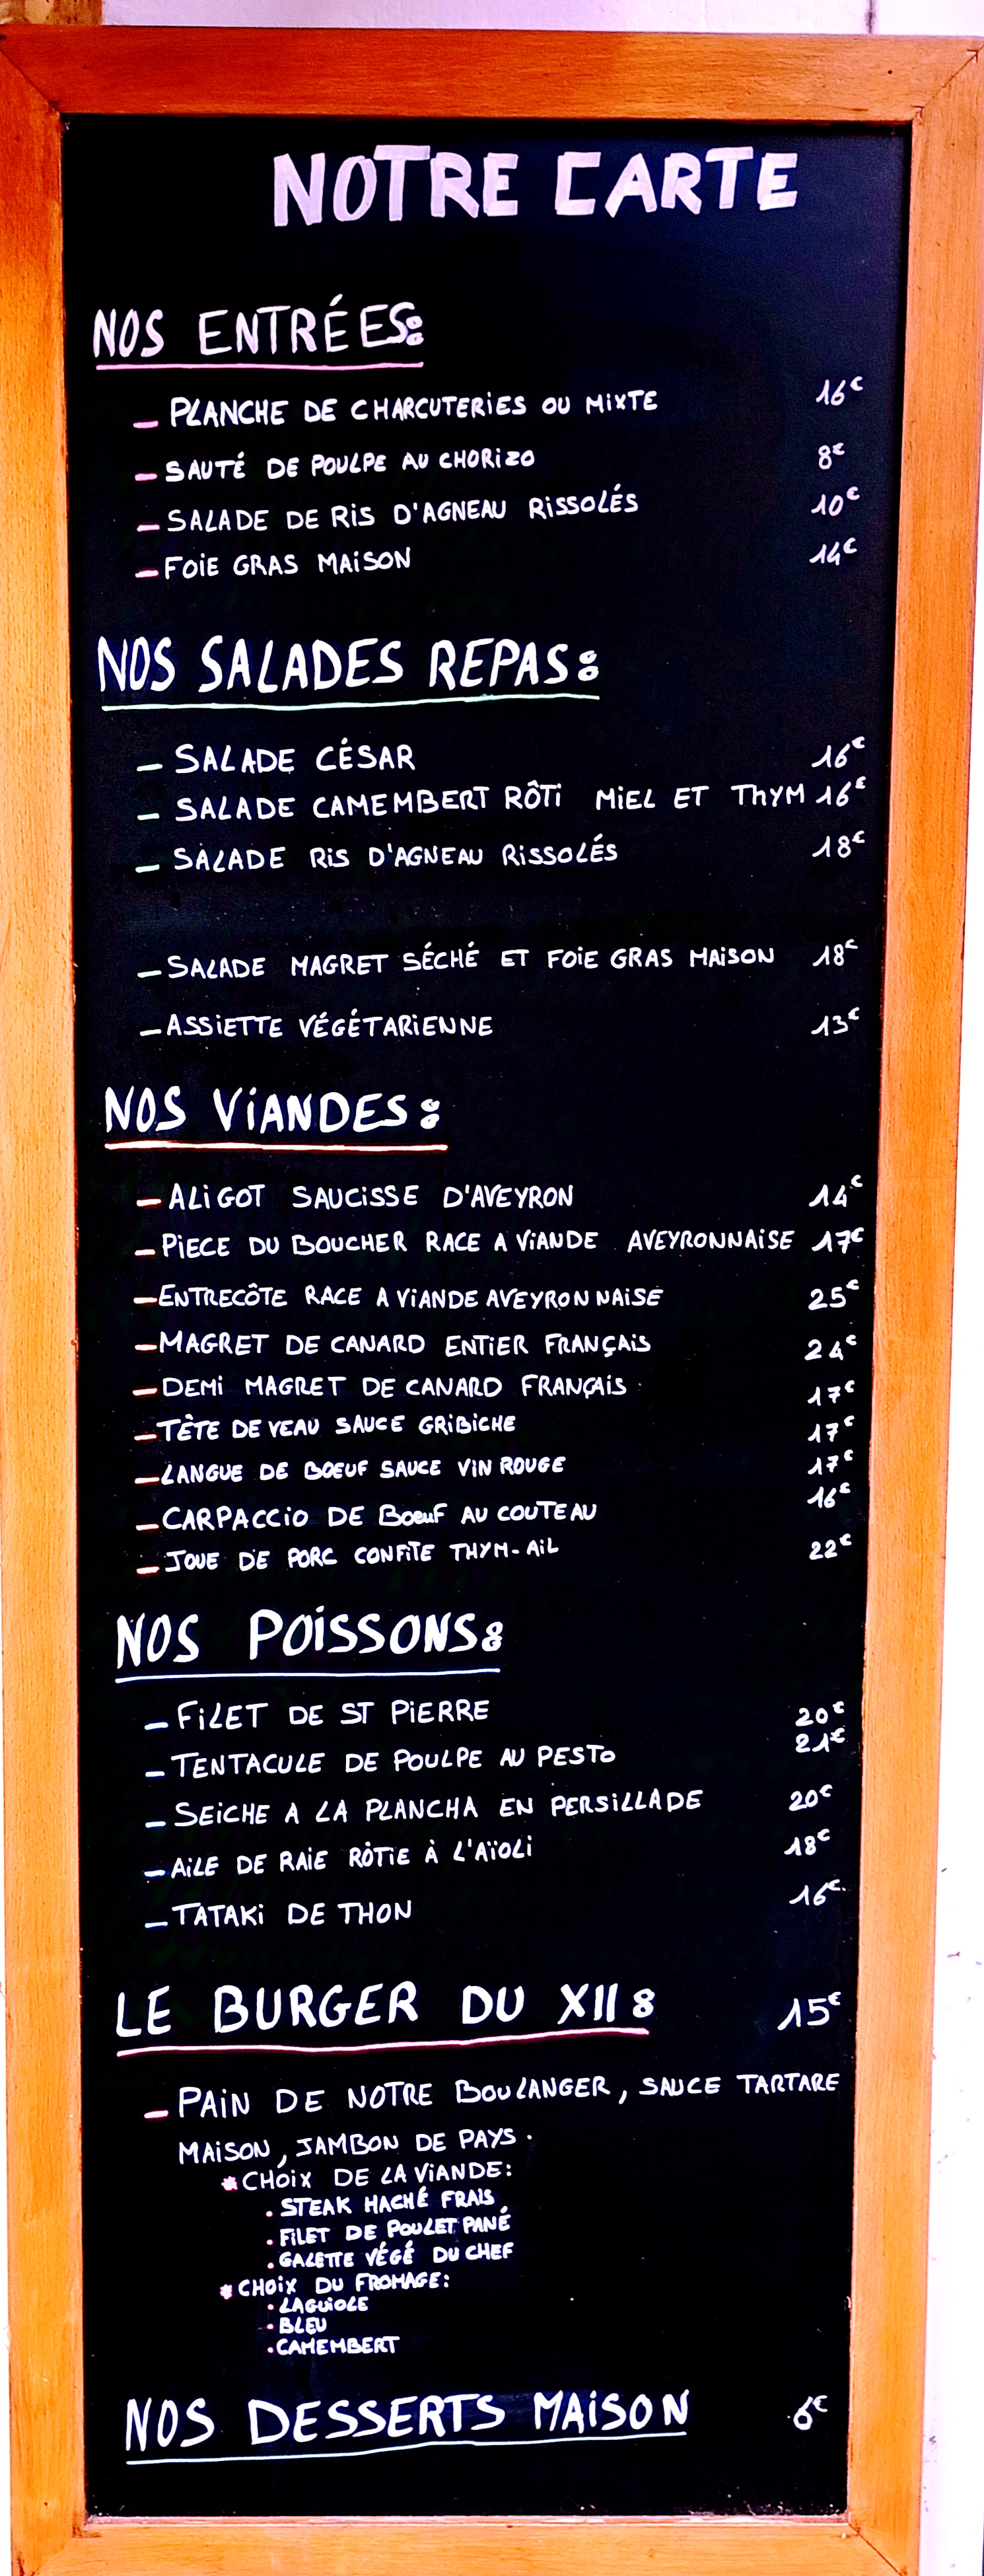 NOTRE CARTE
NOS ENTRÉES:
– PLANCHE DE CHARCUTERIES OU MIXTE 16€
– SAUTÉ DE POULPE AU CHORIZO 8€
– SALADE DE RIS D'AGNEAU RISSOLÉS 10€
– FOIE GRAS MAISON 14€
NOS SALADES REPAS:
– SALADE CÉSAR 16€
– SALADE CAMEMBERT RÔTI MIEL ET THYM 16€
– SALADE RIS D'AGNEAU RISSOLÉS 18€
– SALADE MAGRET SÉCHÉ ET FOIE GRAS MAISON 18€
– ASSIETTE VÉGÉTARIENNE 13€
NOS VIANDES:
– ALIGOT SAUCISSE D'AVEYRON 14€
– PIECE DU BOUCHER RACE A VIANDE AVEYRONNAISE 17€
– ENTRECÔTE RACE A VIANDE AVEYRONNAISE 25€
– MAGRET DE CANARD ENTIER FRANÇAIS 24€
– DEMI MAGRET DE CANARD FRANÇAIS 17€
– TÊTE DE VEAU SAUCE GRIBICHE 17€
– LANGUE DE BOEUF SAUCE VIN ROUGE 17€
– CARPACCIO DE BOEUF AU COUTEAU 16€
– JOUE DE PORC CONFITE THYM-AIL 22€
NOS POISSONS:
– FILET DE ST PIERRE 20€
– TENTACULE DE POULPE AU PESTO 21€
– SEICHE A LA PLANCHA EN PERSILLADE 20€
– AILE DE RAIE RÔTIE À L'AÏOLI 18€
– TATAKI DE THON 16€
LE BURGER DU XII: 15€
– PAIN DE NOTRE BOULANGER, SAUCE TARTARE
MAISON, JAMBON DE PAYS.
* CHOIX DE LA VIANDE:
. STEAK HACHÉ FRAIS
. FILET DE POULET PANÉ
. GALETTE VÉGÉ DU CHEF
* CHOIX DU FROMAGE:
. LAGUIOLE
. BLEU
. CAMEMBERT
NOS DESSERTS MAISON 6€